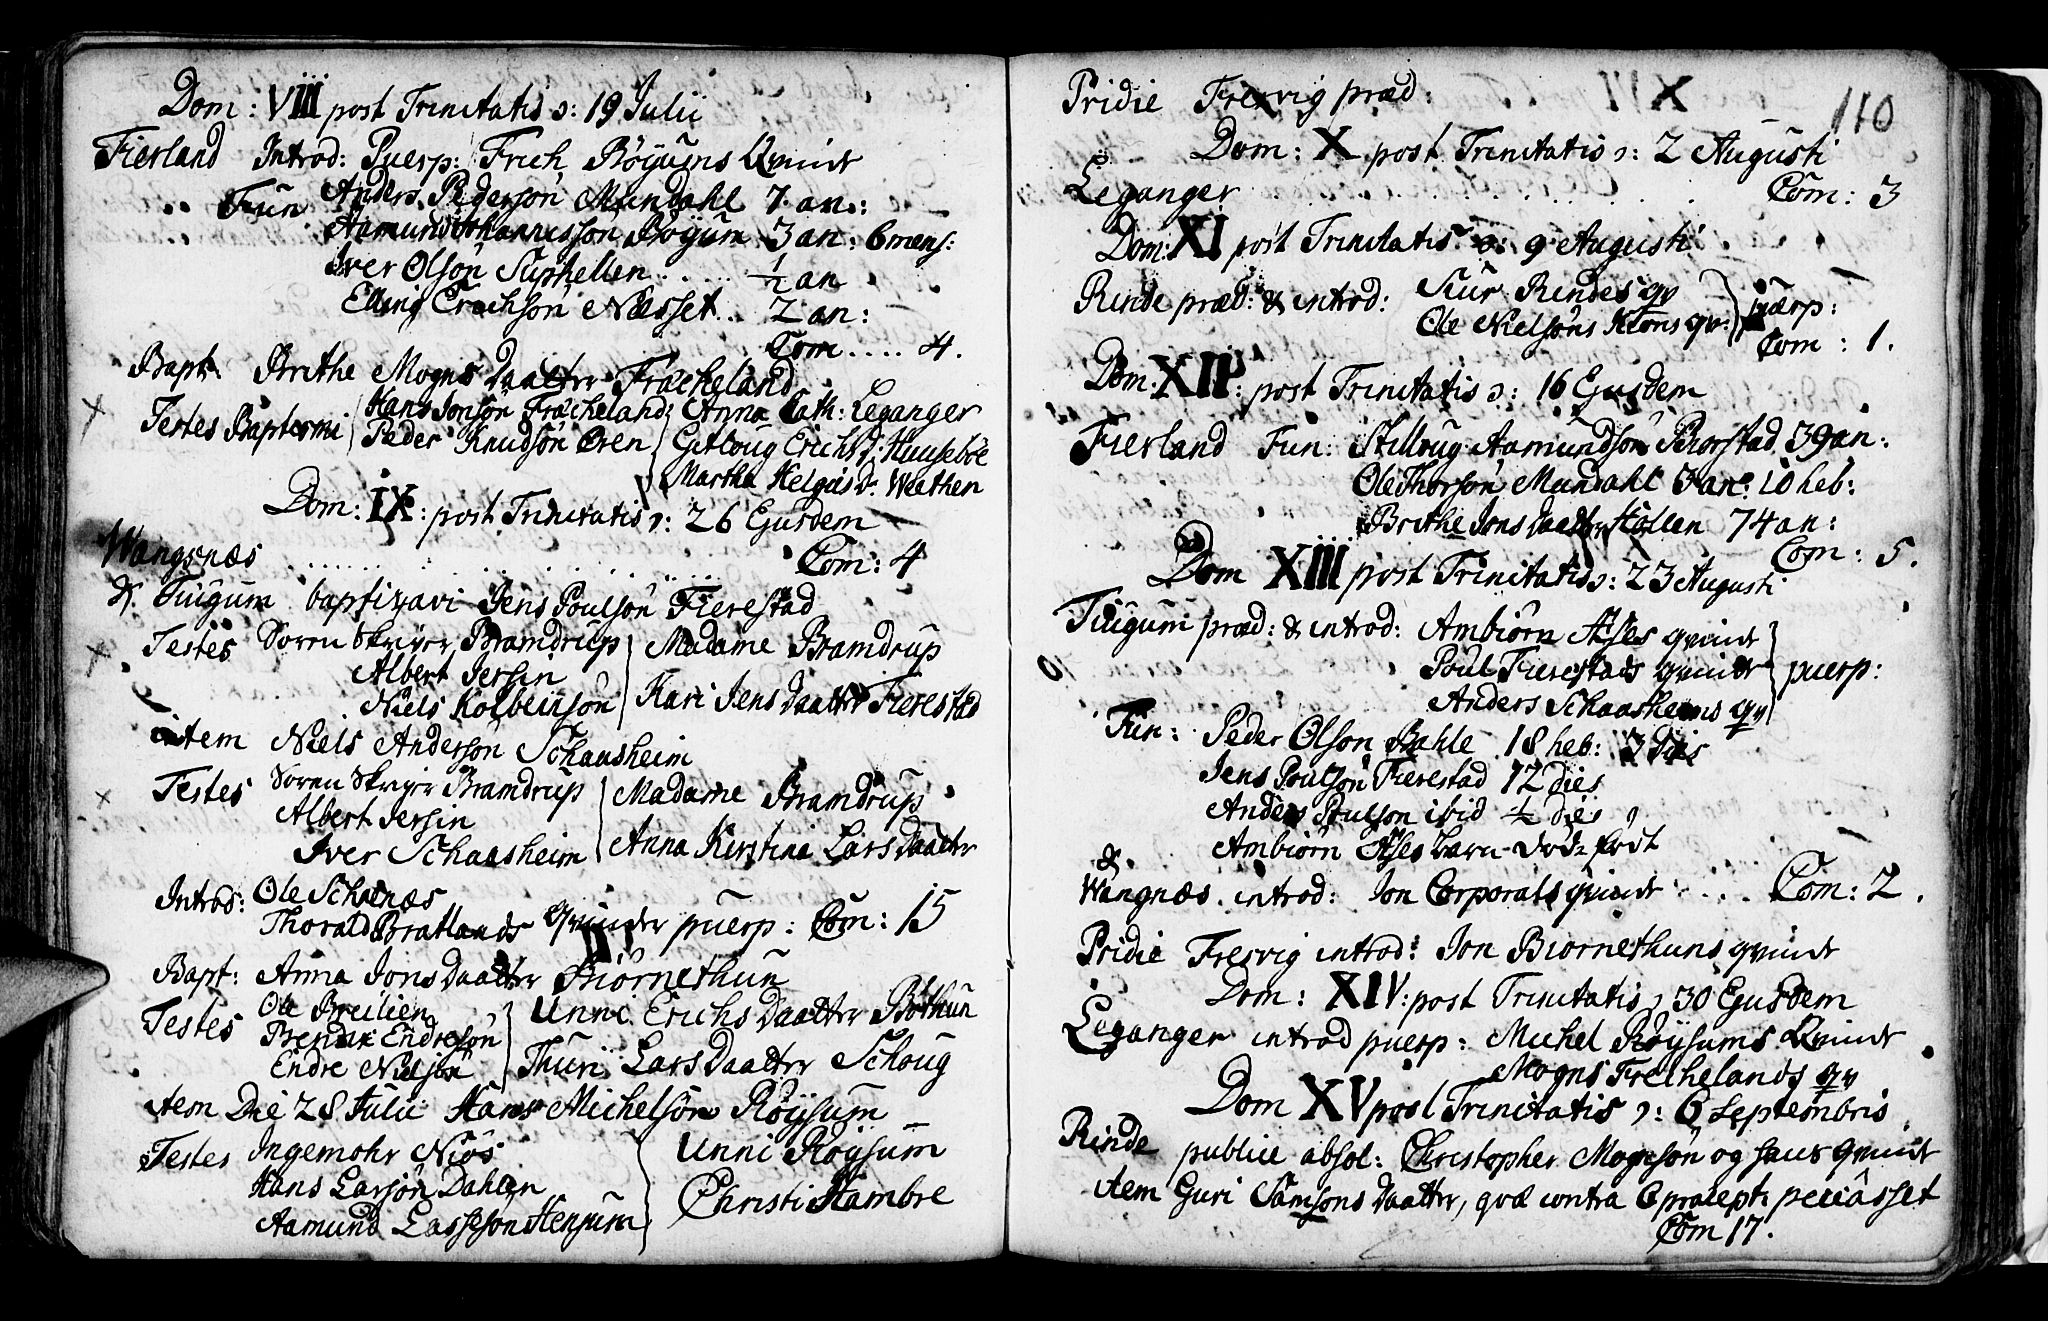 Dom: VIII post Trinitatis ɔ: 19 Julii
Fierland Introd: Puerp: Frich Röÿums Qvinde
Fun Anders Pederson Mundahl 7 an:
Aamund Johannesson Böÿum 3 an: 6 mens:
Iver Olsön Suphellen ..... ½ an
Elling Erichsön Næsset .. 2 an:
Com .... 4.
Bapt: Brithe Mogns Daatter Fræcheland
Testes Baptismi Hans Jonsön Fræcheland Anna Cath: Leganger
Peder Knudsön Øren Gitloug Erichsd: Huuseböe
Martha Helgesd. Wethen
Dom: IX: post Trinitatis ɔ: 26 Ejusdem
Wangsnæs ............ Com: 4
& Tiugum baptizavi Jens Poulsön Fierestad
Testes Soren Skriver Bramdrup Madame Bramdrup
Albert Jersin
Niels Kolbeinsön Kari Jens Daatter Fierestad
item Niels Andersön Schaasheim
Testes Soren Skriver Bramdrup Madame Bramdrup
Albert Jersin
Iver Schaasheim Anna Kirstina Lars Daatter
Introd: Ole Schienæs
Thorald Bratlands qvinder puerp: Com: 15
Bapt: Anna Jons Daatter Biörnethun
Testes Ole Breilien Unni Erichs Daatter Böthun
Bendix Endresön
Endre Nielsön Thuri Lars Daatter Schoug
item Die 28 Julii Hans Michelsön Röÿsum
Testes Ingemohr Niös Unni Röÿsum
Hans Larsön Dahlen
Aamund Lasseson Henjum Christi Hambre
110
Pridie Fresvig præd:
Dom: X post Trinitatis ɔ: 2 Augusti
Leganger ............ Com: 3
Dom: XI post Trinitatis ɔ: 9 Augusti
Rinde præd: & introd: Siur Rindes qv
Ole Nielsöns qv: puærp:
Com: 1.
Dom: XII: post Trinitatis ɔ: 16 Ejusdem
Fierland Fun: Stillrug Aamundsön Biorstad 39 an:
Ole Thorsön Mundahl 3 an: 10 heb:
Brithe Jons Daatter Hollen 74 an:
Com: 5.
Dom XIII post Trinitatis ɔ: 23 Augusti
Tiugum præd: & introd: Ambiörn qvinde
Poul Fierestads qvinde puerp:
Anders Schaasheims qv
Fun: Peder Olson Bahle 18 heb: 3 dies
Jens Poulsön Fierestad 12 dies
Anders Poulson ibid ½ dies
Ambiörn barn död-född
&
Wangnæs. introd: Jon Corporals qvinde .... Com: 2.
Pridie Fresvig introd: Jon Biornethuns qvinde
Dom: XIV: post Trinitatis ɔ 30 Ejusdem
Leganger introd puerp: Michel Röÿsums Qvinde
Mogns Frechelands qv
Dom XV post Trinitatis ɔ: 6 Septembris
Rinde publice absol: Christopher Mognsön og hans qvinde
item Guri Samsons Daatter, qvæ contra 6 præcept: peccasset
Com 17.